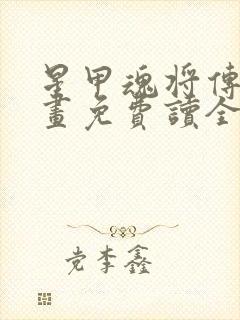 星甲魂将傳
畫免費讀全
党李鑫